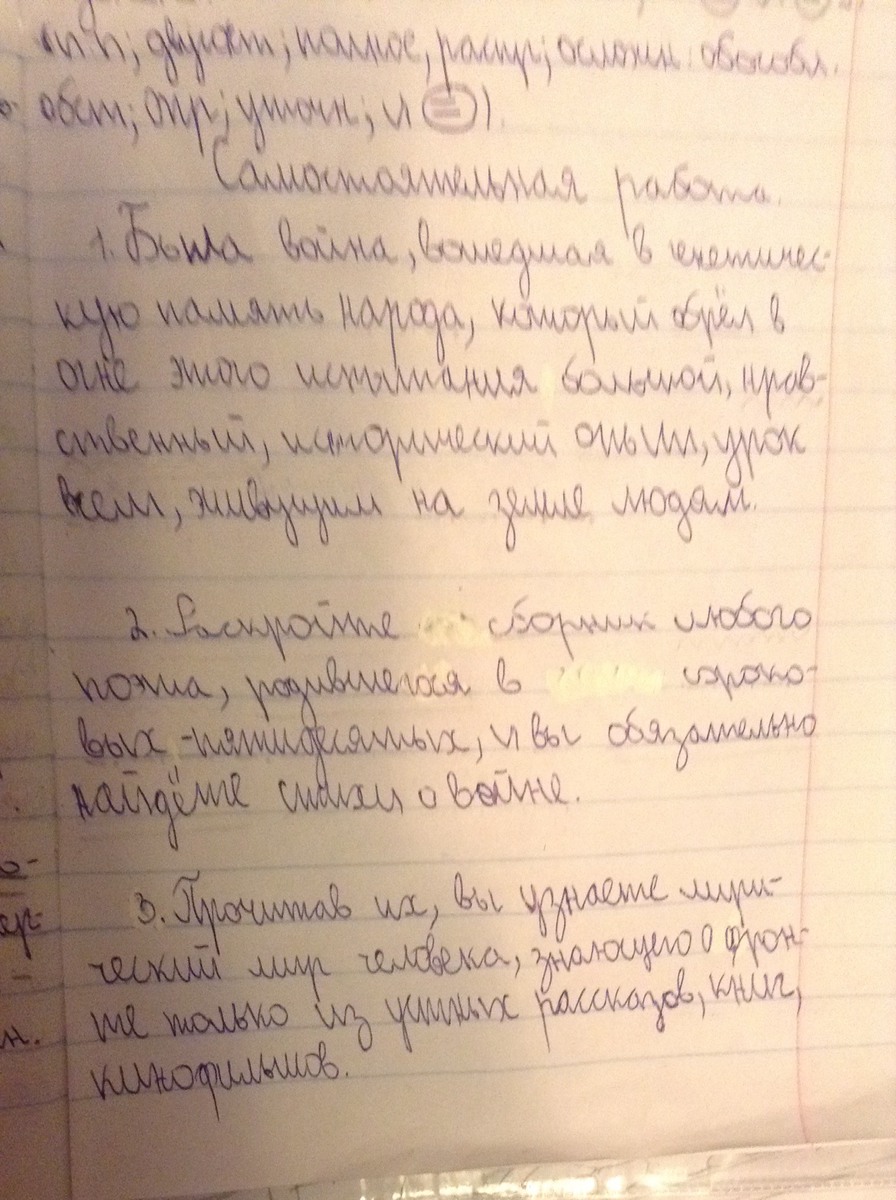 двусост; полное, распр; осложн. обособл.
обст; опр; уточн; и (=)).
Самостоятельная работа.
1. Была война, вошедшая в генетичес-
кую память народа, который обрёл в
огне этого испытания большой, нрав-
ственный, исторический опыт, урок
всем, живущим на земле людям.
2. Раскройте сборник любого
поэта, родившегося в сороко-
вых-пятидесятых, и вы обязательно
найдёте стихи о войне.
3. Прочитав их, вы узнаете лири-
ческий мир человека, знающего о фрон-
те только из устных рассказов, книг,
кинофильмов.